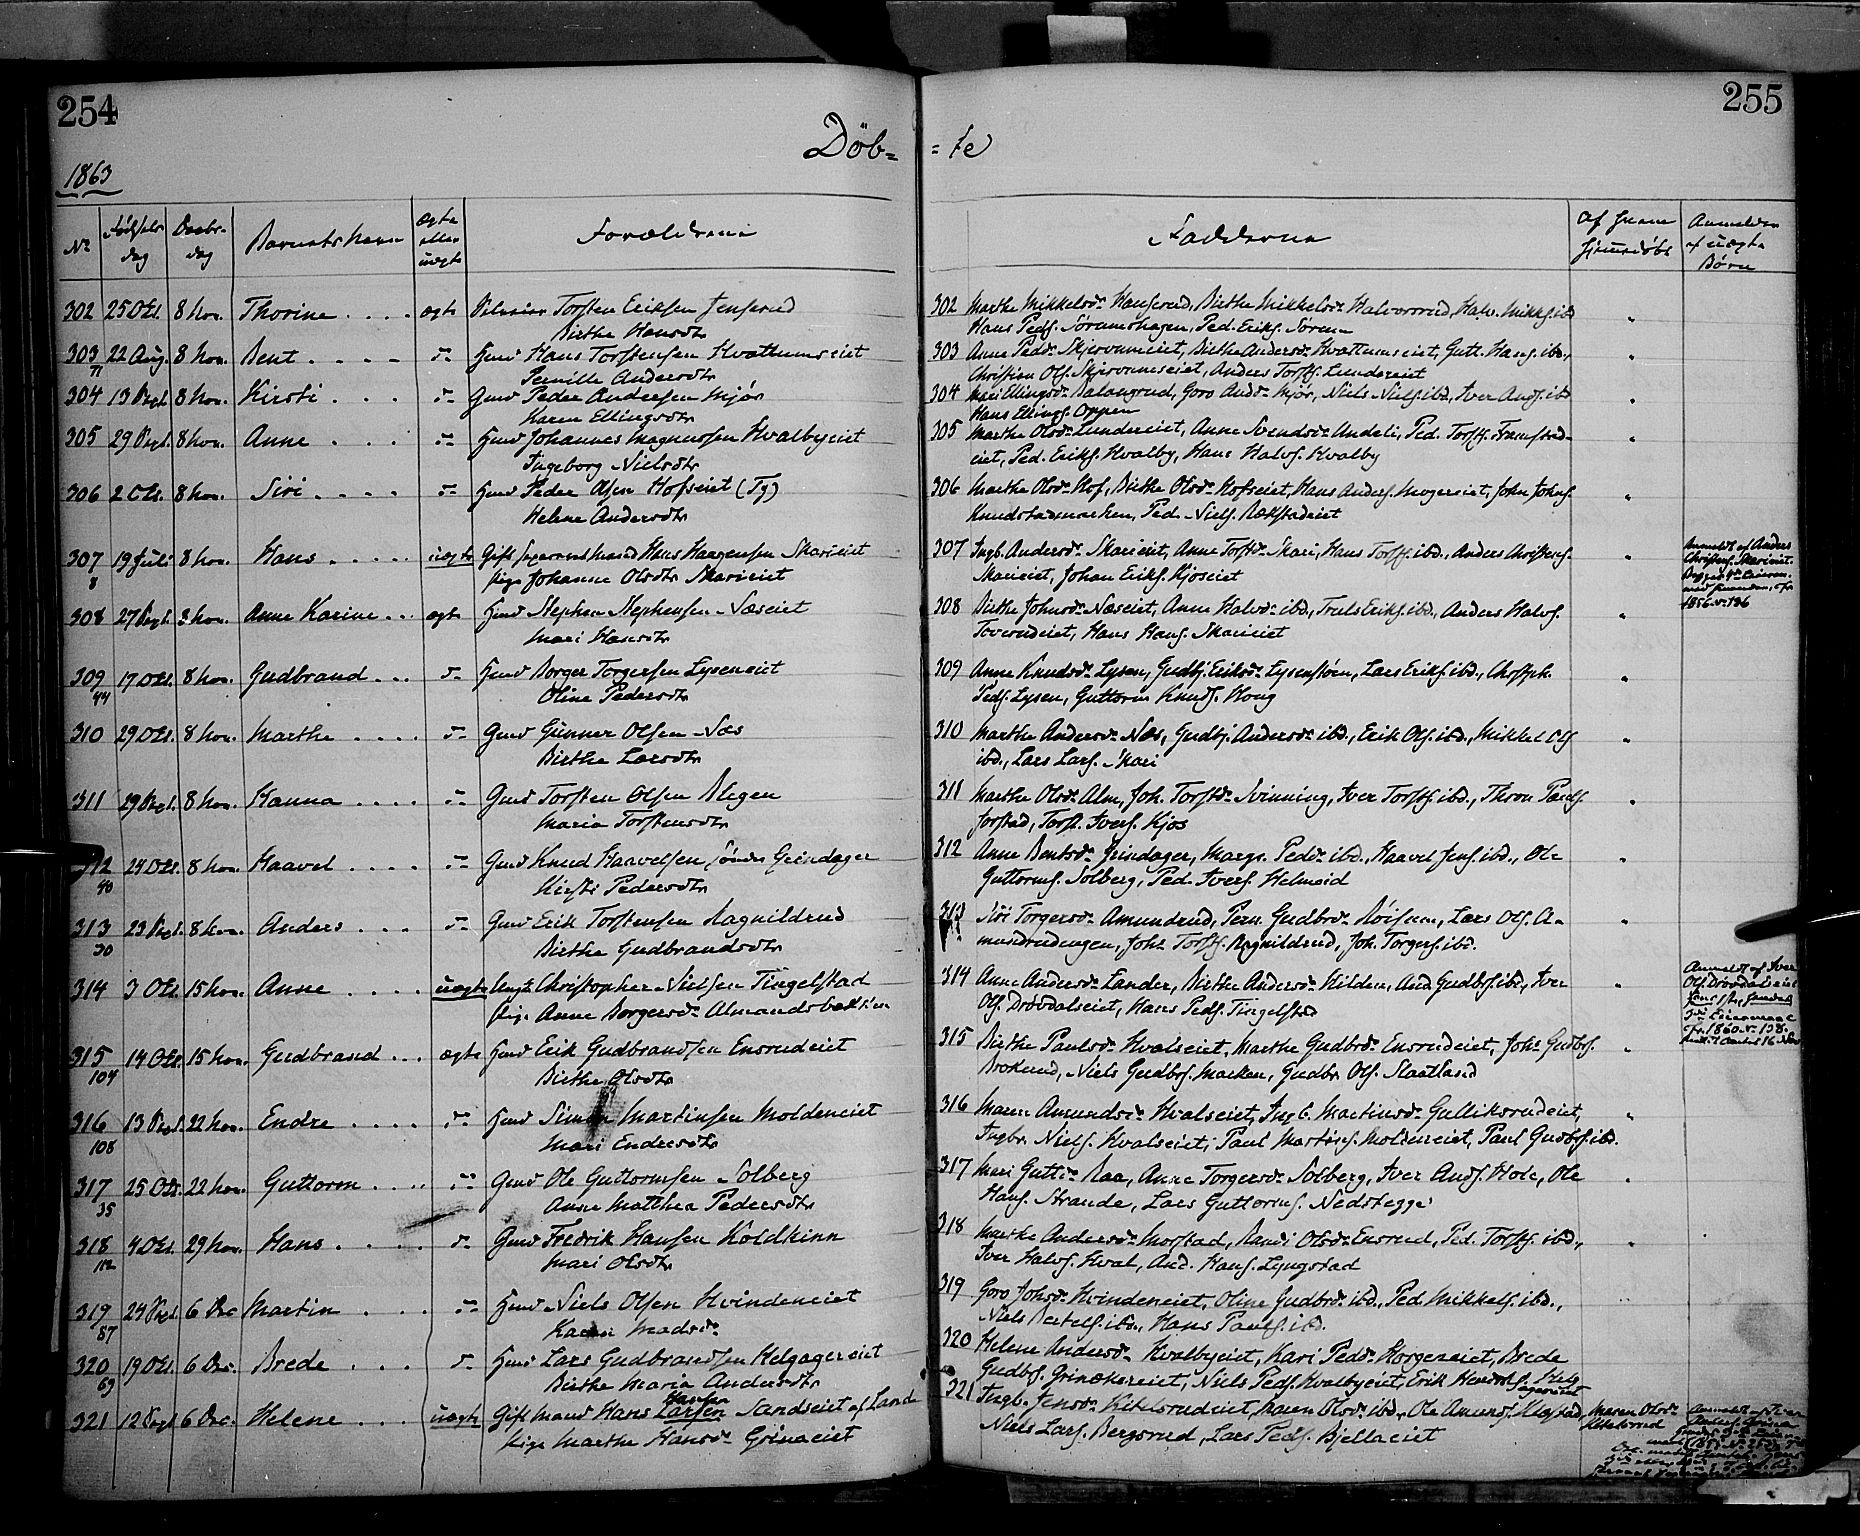 254
Döb-
1863
No
Fødsels dag
Daabs-dag
Barnets Navn
Ægte eller uægte
Forældrene
302 25 Oct. 8 Nov. Thorine . . . . ægte Torsten Eriksen
Birthe Hansdtr
303 22 Aug. 8 Nov. Bent . . . . Huusmd Hans Torstensen Hvattumseiet
Pernille Andersdtr
304 13 Sept. 8 Nov. Kirsti . . . Gmd Peder Andersen Mjør
Karen Ellingsdtr
305 29 Sept. 8 Nov. Anne . . . . Johannes Magnussen Hvalbyeiet
Ingeborg Nielsdtr
306 2 Oct. 8 Nov. Siri . . . . Peder Olsen Hofseiet (Tg)
Helene Andersdtr
307 19 Juli 8 Nov. Hans . . . . uægte Gift Hans Haagensen Skarieiet
8 Pige Johanne Olsdtr Skarieiet
308 27 Sept. 8 Nov. Anne Karine . . . ægte Stephen Stephensen Næseiet
Mari Hansdtr
309 17 Oct. 8 Nov. Gudbrand . . . Borger Torgersen Lyseneiet
44 Oline Pedersdtr
310 29 Oct. 8 Nov. Marthe . . . . Gmd Gunner Olsen Næs
Birthe Larsdtr
311 29 Sept. 8 Nov. Hanna . . . . Gmd Torsten Olsen Blegen
Maria Torstensdtr
312 24 Oct. 8 Nov. Haavel . . . . Gmd Knud Haavelsen søndre Grindager
40 Kirsti Pedersdtr
313 23 Sept. 8 Nov. Anders . . . Gmd Erik Torstensen Ragnildrud
30 Birthe Gudbrandsdtr
314 3 Oct. 15 Nov. Anne . . . . uægte Ungk. Christopher Nielsen Tingelstad
Pige Anne Borgersdr Almandsbakken
315 14 Oct. 15 Nov. Gudbrand . . . ægte Erik Gudbrandsen Ensrudeiet
104 Birthe Olsdtr
316 13 Sept. 22 Nov. Endre . . . . Simen Martinsen Moldeneiet
108 Mari Endersdtr
317 25 Oct. 22 Nov. Guttorm . . . . Gmd Ole Guttormsen Solberg
35 Anne Matthea Pedersdtr
318 4 Oct. 29 Nov. Hans . . . . Gmd Fredrik Hansen Koldkinn
112 Mari Olsdtr
319 24 Sept. 6 Dec Martin . . . Niels Olsen Hvindeneiet
87 Karen Madsdr
320 19 Oct. 6 Dec. Brede . . . Lars Gudbrandsen Helgagereiet
69 Birthe Maria Andersdtr
321 12 Sept. 6 Dec. Helene . . . uægte Gift Mand Hans Larsen Sandseiet af Land
Hansen
Pige Marthe Hansdr Grinaeiet
255
= te
Fadderne
Af hvem hjemmedøbt
Anmelder af uægte Børn
302 Marthe Mikkelsdr Birthe Mikkelsdr Halvorsrud, Halv. Mikkels. ibd
Hans Peds. Sørumshagen, Ped. Eriks. Sørum
303 Anne Pedsdr Skjervumeiet, Birthe Andersdr Hvattumseiet, Gutt. Hans. ibd.,
Christian Ols. Skjervumeiet, Anders Torsts. Lundereiet
304 Mari Ellingsdr Goro Andsdr Mjør, Niels Niels. ibd., Iver Ands. ibd
Hans Ellings. Oppen
305 Marthe Olsdr Lundereiet, Anne Svendsdr Andeli, Ped. Torsts. Framstad-
eiet, Ped. Eriks. Hvalby, Hans Halvs. Hvalby
306 Marthe Olsdr Hof, Birthe Olsdr Hofseiet, Hans Anders. John Johns.
Knudstadmarken, Ped. Niels. Bækstadeiet
307 Ingb. Andersdr Skarieiet, Anne Torstsdr Skari, Hans Torsts. ibd., Anders Christens.
Skarieiet, Johan Eriks. Kjoseiet
Anmeldt af Anders
Christens. Skarieiet.
1856 No 136
308 Birthe Johnsdr Næseiet, Anne Halvsdr ibd., Truls Eriks. ibd., Anders Halvs.
Toverudeiet, Hans Hans. Skarieiet
309 Anne Knudsdr Lysen, Gudbj. Eriksdr Lars Eriks. ibd., Christph.
Peds. Lysen, Guttorm Knuds. Haug
310 Marthe Andersdr Næs, Gudbj. Andersdr ibd., Erik Ols. ibd., Mikkel Ols
ibd., Lars Lars. Skari
311 Marthe Olsdr Alm, Joh. Torstsdr Svinning, Iver Torsts. ibd., Thron Pauls.
Torst. Ivers. Kjos
312 Anne Bentsdr Grindager, Margr. Pedsdr ibd., Haavel Jens. ibd., Ole
Guttorms. Solberg, Ped. Ivers. Helmeid
313 Siri Torgersdr Amundrud, Pern. Gudbrdr Røisum, Lars Ols. A-
mundrudengen, Johs Torsts. Ragnildrud, Joh. Torgers. ibd.
314 Anne Andersdr Lander, Birthe Andersdr Hilden, And. Gudbs. ibd., Iver
Ols. Drøvdalseiet, Hans Peds. Tingelstad
Anmeldt af Iver
Ols. Drøvdalseiet
1860 No 138
315 Birthe Paulsdr Hvalseiet, Marthe Gudbrdr Ensrudeiet, Johs Gudbs.
Brokerud, Niels Gudbs. Marken, Gudbr. Ols. Slaatland
316 Maren Amundsdr Hvalseiet, Ingb. Martinsdr Gulliksrudeiet,
Ingbr. Niels. Hvalseiet, Paul Martins. Moldeneiet, Paul Gudbs. ibd.
317 Mari Guttdr Raa, Anne Torgersdr Solberg, Iver Ands. Hole, Ole
Hans. Strande, Lars Guttorms. Nedstegge
318 Marthe Andersdr Morstad, Randi Olsdr Ensrud, Ped. Torsts. ibd.,
Iver Halvs. Hval, And. Hans. Lyngstad
319 Goro Johsdr Hvindeneiet, Oline Gudbrdr ibd., Ped. Mikkels. ibd.,
Niels Bertels. ibd., Hans Pauls. ibd.
320 Helene Andersdr Hvalbyeiet, Kari Pedsdr Horgeneiet, Brede
Gudbs. Grinakereiet, Niels Peds. Hvalbyeiet, Erik
321 Ingb. Jensdr Kitelsrudeiet, Maren Olsdr ibd., Ole Amunds. Klæstad,
Niels Lars. Bergsrud, Lars Peds. Bjellaeiet
Maren Olsdr
Kitelsrud